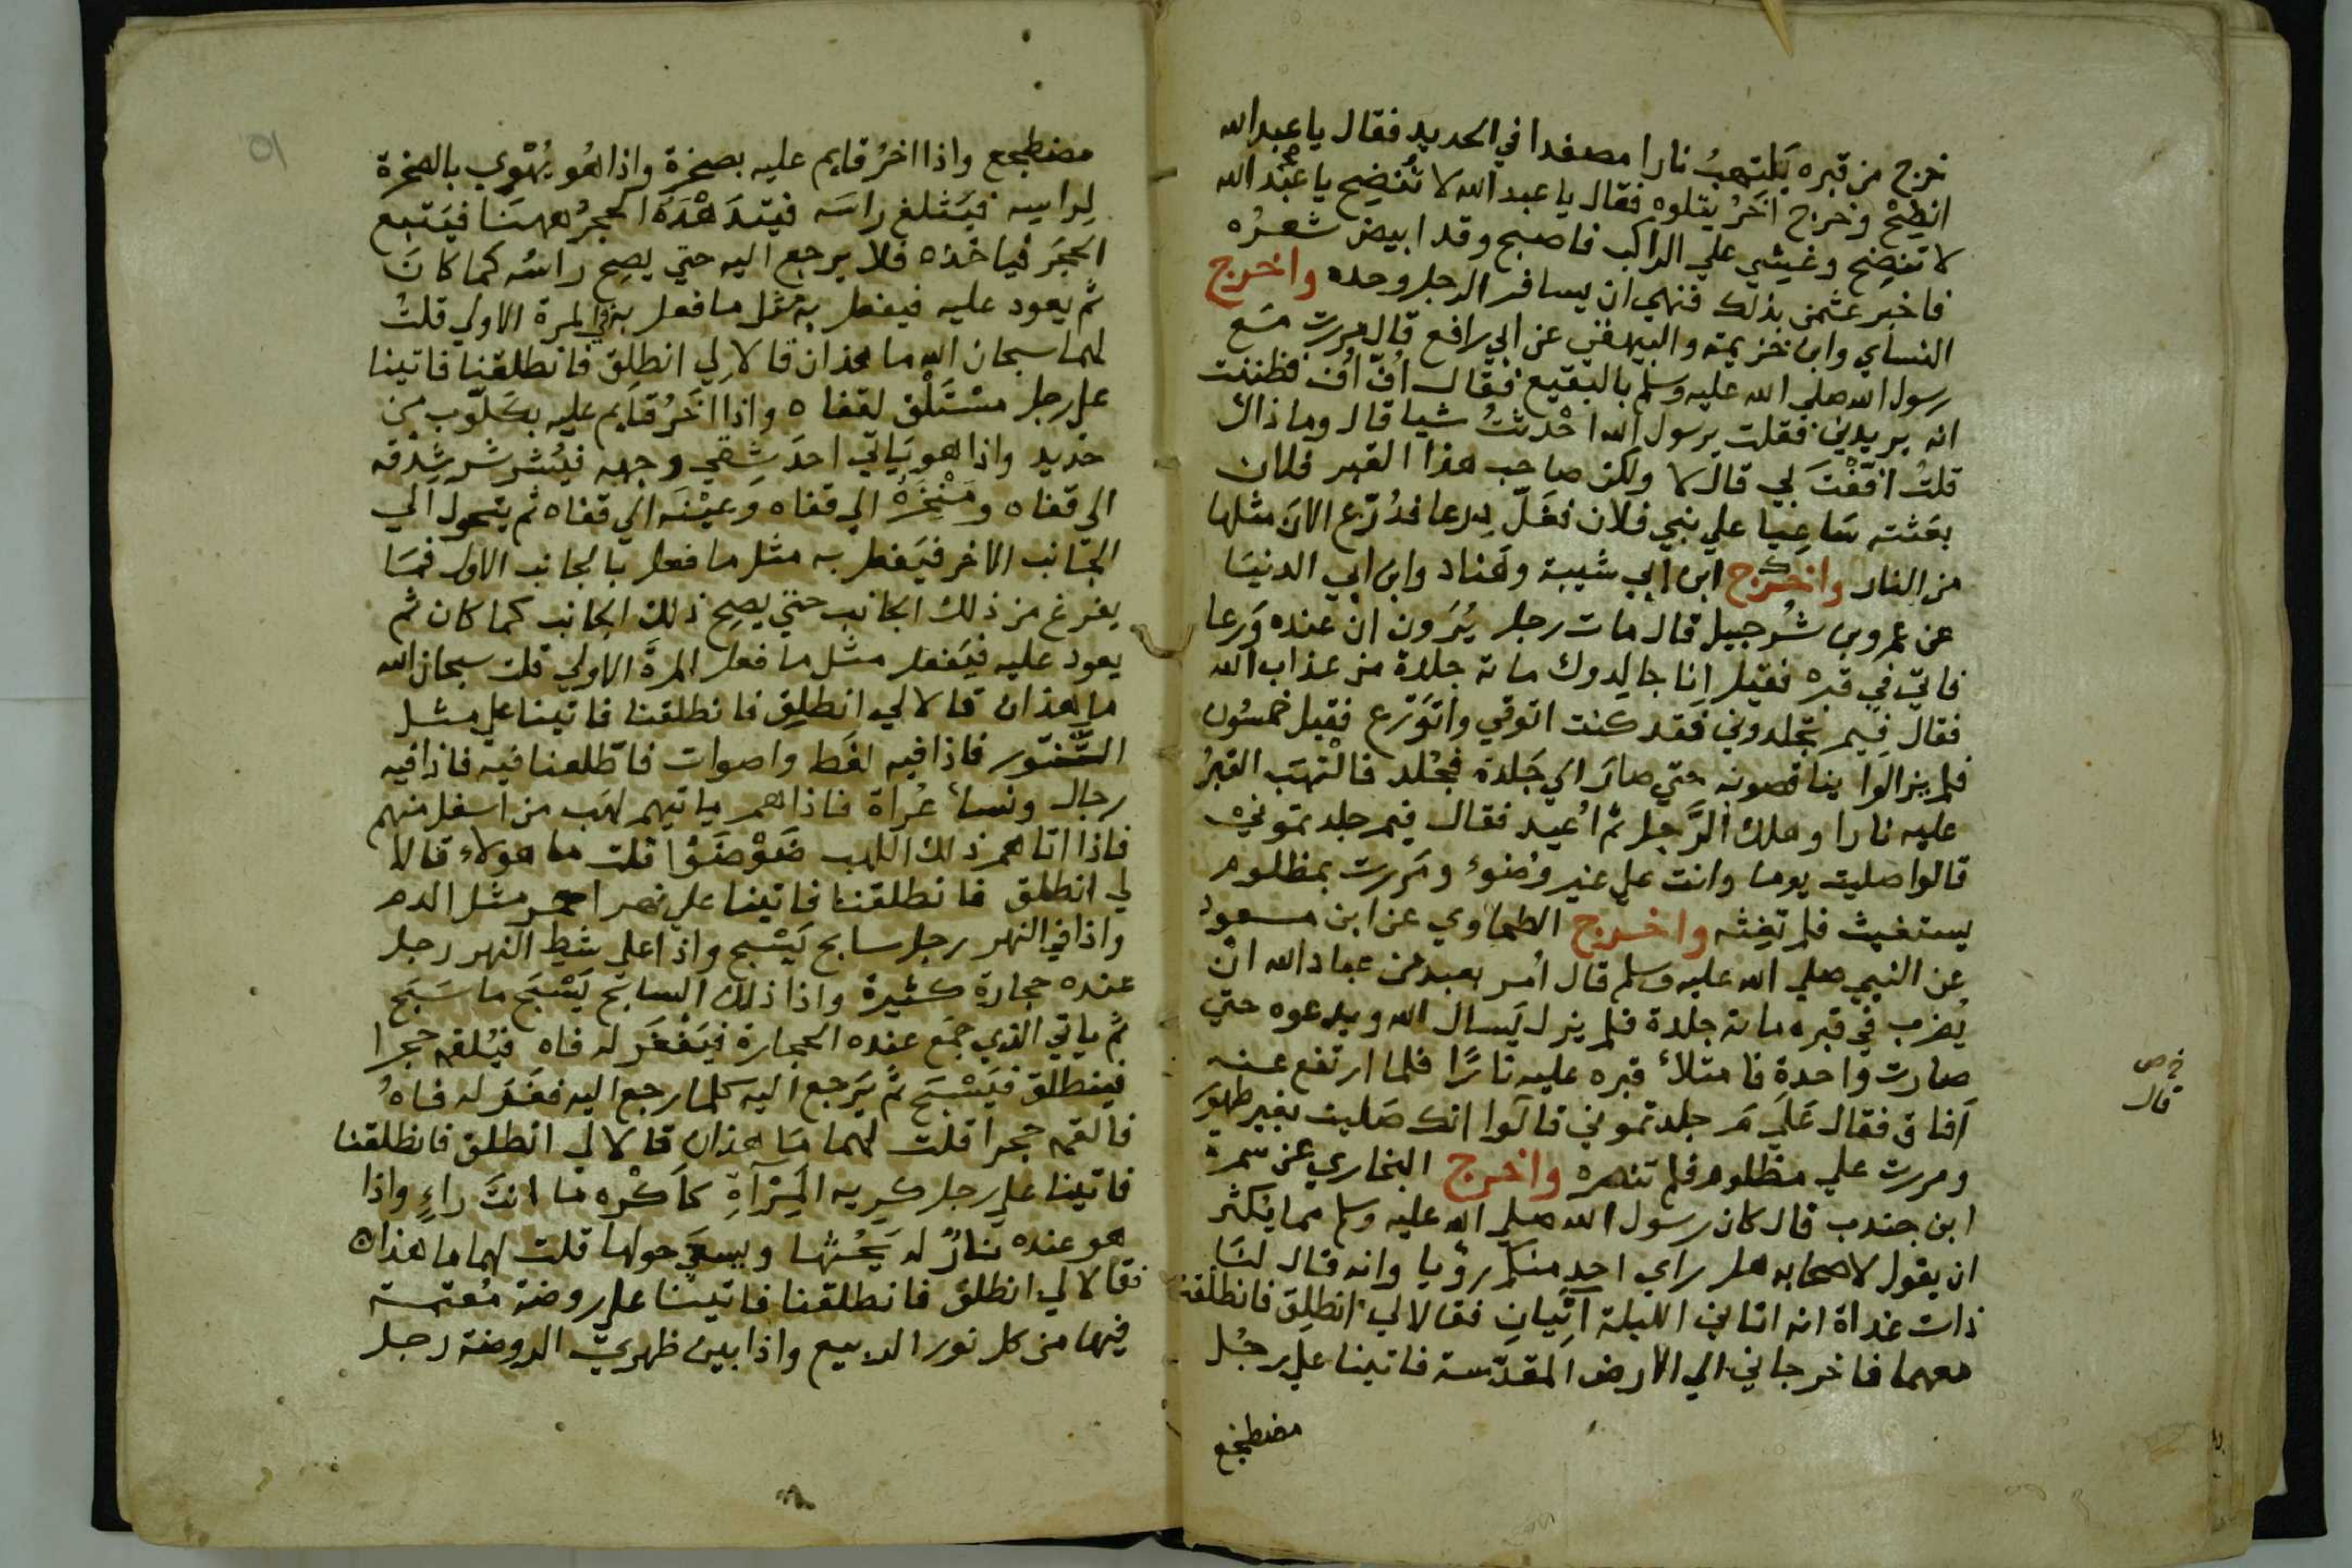 خرج من قبره يلتهبُ نارا مصفدا في الحديد فقال يا عبد الله
انضِحْ وخرج آخَرُ يتلوه فقال يا عبد الله لا تُنضِح يا عبْد الله
لا تنضِح وغُشي علي الراكب فاصبح وقد ابيض شعرُه
فاخبر عثمن بذلك فنهي ان يسافر الرجل وحده واخرج
النساي وابن خزيمة والبيهقي عن ابي رافع قال مررت مَع
رسول الله صلي الله عليه وسلم بالبقيع فقال اُفّ اُف فظننت
انه يريدني فقلت يرسول الله احْدثتُ شيا قال وما ذاك
قلتُ افّفْتَ لي قال لا ولكن صاحب هذا القبر فلان
بعَثته سَاعِيا علي بني فلان فغَلّ دِرعا فدُرّع الانَ مثلها
من النار واخرج ابن ابي شيبة وهَناد وابن ابي الدنيَا
عن عمرو بن شُرحبيل قال مات رجل يُرَون ان عنده وَرعا
فاتي في قبره فقيل اِنا جالِدوك ماتة جلدة من عذاب الله
فقال فِيم تجلدوني فقد كنت اتوقي واتوَرّع فقيل خمسُون
فلم يزالوا يناقصونه حتي صارَ الي جَلدة فجُلد فالْتهَب القبرُ
عليه نارا وهلك الرَّجل ثم اُعيد فقال فيم جلدتموني
قالوا صليت يوما وانت علي غير وُضوء ومَررت بمظلوم
يستغيث فلم تغِثه واخرج الطحاوي عن ابن مسعود
عن النبي صلي الله عليه وسلم قال اُمر بعبد من عباد الله انْ
يُضرب في قبره ماتة جلدة فلم يزل يَسال الله ويدعوه حتي
صارت واحدة فامتلأ قبره عليه نارًا فلما ارتفع عنه
اَفاق فقال عَلي مَ جلدتموني قالوا انك صَليت بغير طهور
ومررت علي مظلوم فلم تنصره واخرج البخاري عن سمرة
ابن جندب قال كان رسول الله صلي الله عليه وسلم مما يُكثر
ان يقول لاصحابه هل راي احدٍ منكم رؤيا وانه قال لنَا
ذات غداة انه اتاني الليلة آتِيانِ فقالا لي انطلِق فانطلقت
معهما فاخرجاني الي الارض المقدّسة فاتينا علي رجُل
مضطجع
خ ص
قال
مضطجع واذا اخرُ قايم عليه بصخرة واذا هُو يُهْوِي بالصخرة
لِراسِه فيَثلغ راسَه فيتدَهْدَهُ الحجرُ ههنَا فيَتبع
الحجَرَ فياخذه فلا يرجع اليه حتي يصِح راسُه كما كانَ
ثم يعود عليه فيفعل به مثل ما فعل به في المرة الاولي قلتُ
لهما سبحان الله ما هذان قالا لي انطلِق فانطلقنا فاتينا
علي رجل مسْتلْق لقفاه واذا اخَرُ قايم عليه بكَلّوب من
حديد واذا هو يَاتي احدَ شِقي وجهه فيُشرشر شِدْقه
الي قفاه ومنْخِرَهُ الي قفاه وعيْنَه الي قفاه ثم يتحول الي
الجَانب الاخر فيَفعل به مثل ما فعل بالجانب الاول فمَا
يفرغ من ذلك الجانب حتي يصِح ذلك الجانب كما كان ثم
يعود عليه فيَفعل مثل ما فعل المرةَ الاولي قلت سبحان الله
ما هذان قالا لي انطلِق فانطلقنا فاتينا علي مثل
التَّنّور فاذا فيه لغَط واصوات فاطّلعنا فيه فاذا فيه
رجال ونسأ عُراة فاذا هم ياتيهم لهَب من اسفل منهم
فاذا اتاهم ذلك اللهب ضَوْضَوْا قلت ما هولاء قالا
لي انطلق فانطلقنا فاتينا علي نهر احمر مثل الدم
واذا في النهر رجل سابح يَسْبح واذا علي شط النهر رجل
عنده حجارة كثيرة واذا ذلك السابح يَسْبَح ما سَبَح
ثم ياتي الذي جمَع عنده الحجارة فيَفغَر له فاه فيُلقمه حجرا
فينطلق فيَسْبَح ثم يَرجع اليه كلما رجع اليه فغَر له فاهُ
فالقمه حجرا قلت لهما مَا هذان قالا لي انطلق فانطلقنا
فاتينا علي رجل كريه المَرْآةِ كاَكْره ما انتَ راءٍ واذا
هو عنده نارٌ له يَحُشّها ويسعَي حولها قلت لهما ما هذان
فقالا لي انطلق فانطلقنا فاتينا علي روضة مُعتمة
فيها من كل نور الربيع واذا بين ظهريّ الروضة رجل